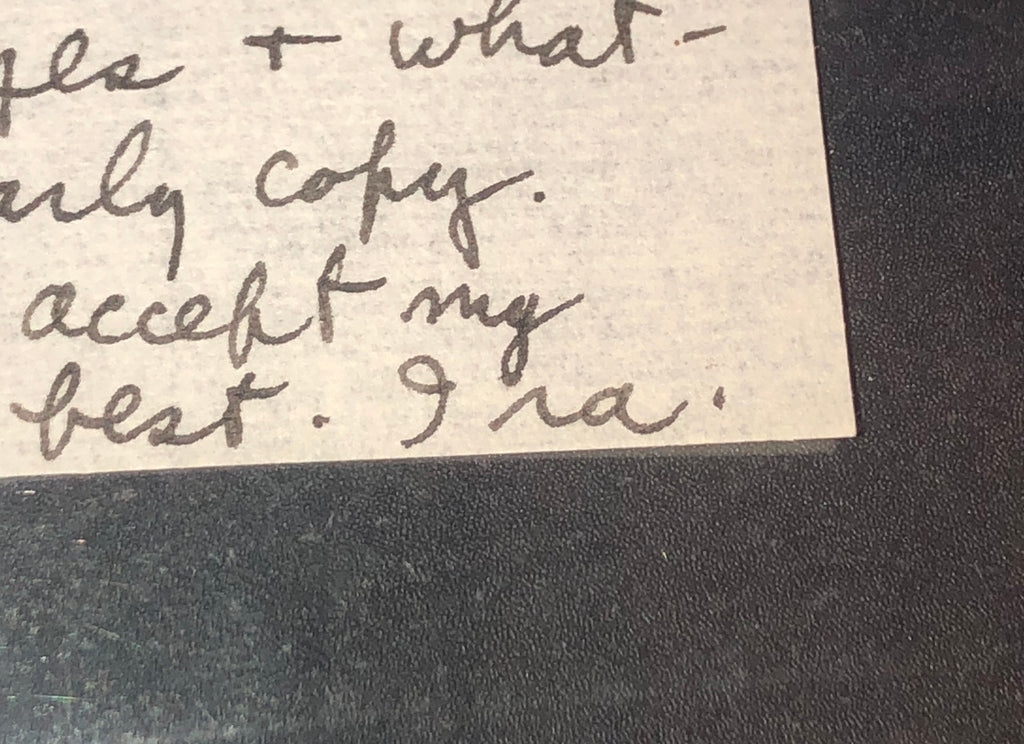 + what-
copy.
accept my
best. Ira.